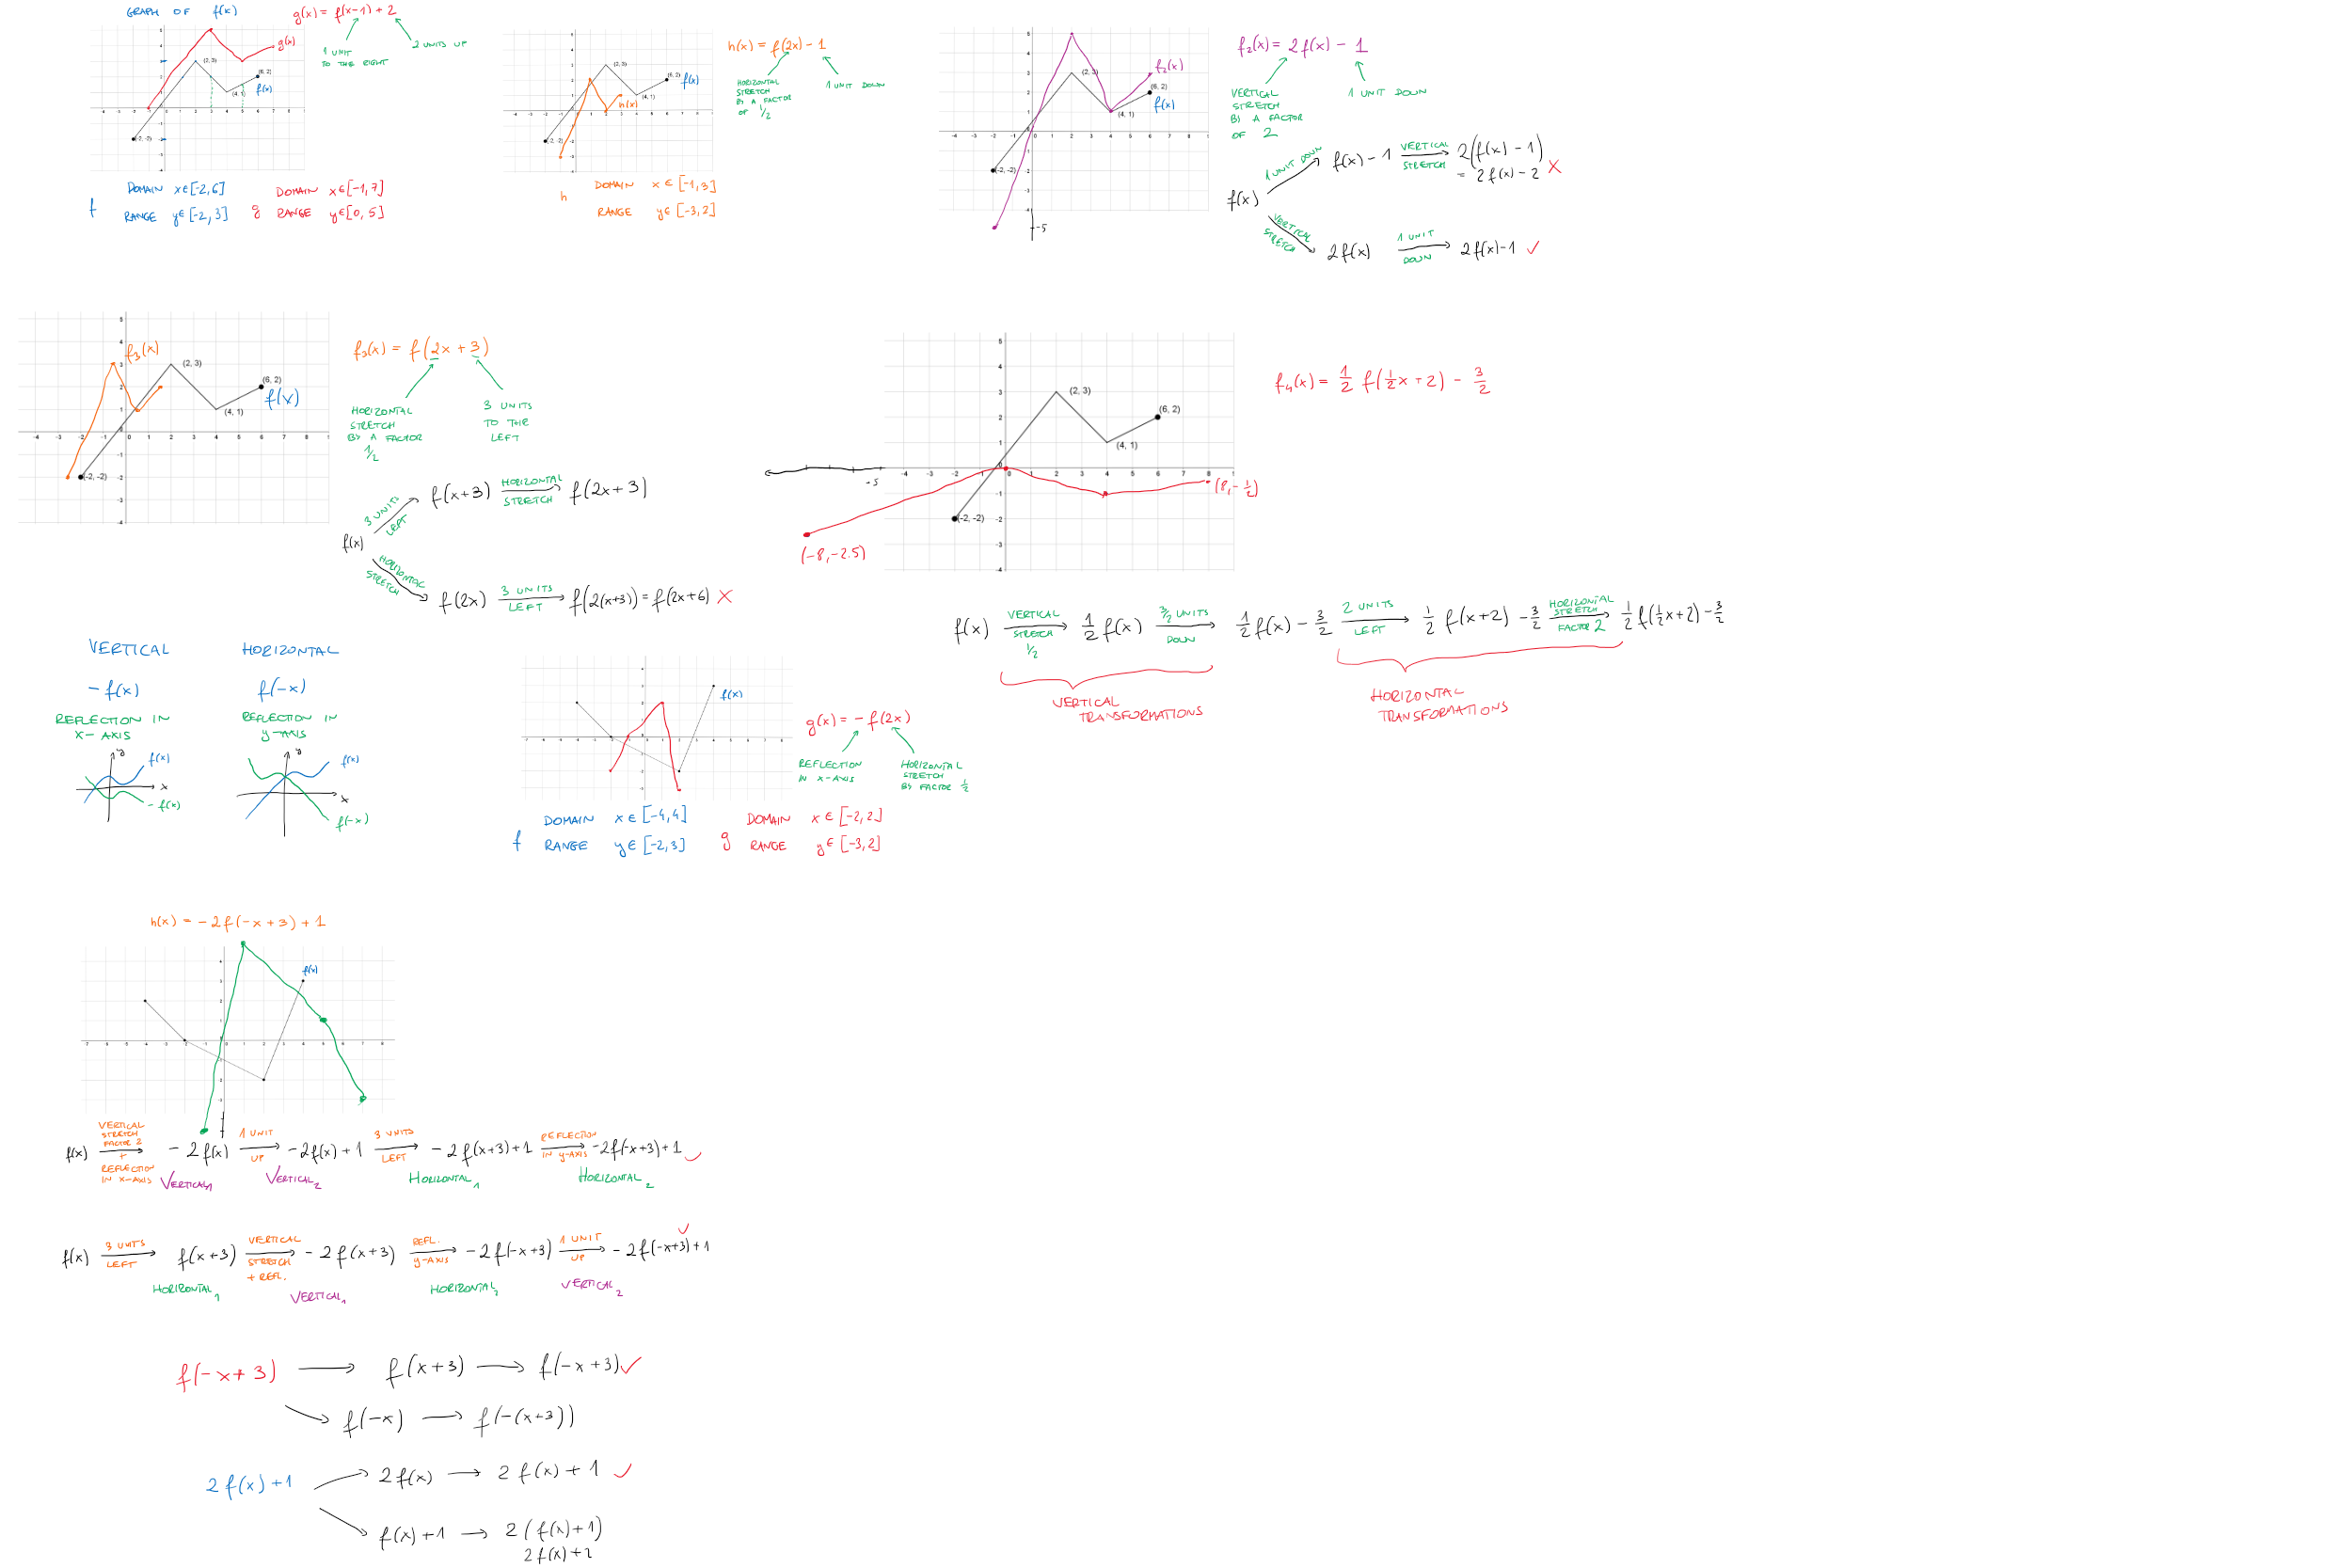 GRAPH OF f(x)
g(x) = f(x-1) + 2
1 UNIT
TO THE RIGHT
2 UNITS UP
g(x)
(2, 3)
(6, 2)
(4, 1)
f(x)
(-2, -2)
f
DOMAIN x∈[-2,6]
RANGE y∈[-2,3]
g
DOMAIN x∈[-1,7]
RANGE y∈[0,5]
h(x) = f(2x) - 1
HORIZONTAL
STRETCH
BY A FACTOR
OF 1/2
1 UNIT DOWN
(2, 3)
(6, 2)
f(x)
(4, 1)
h(x)
(-2, -2)
h
DOMAIN x ∈ [-1,3]
RANGE y∈ [-3,2]
f₂(x) = 2f(x) - 1
VERTICAL
STRETCH
BY A FACTOR
OF 2
1 UNIT DOWN
f₂(x)
(2, 3)
(6, 2)
f(x)
(4, 1)
(-2, -2)
-5
f(x)
1 UNIT DOWN
f(x) - 1
VERTICAL
STRETCH
2(f(x) - 1)
= 2f(x) - 2 X
VERTICAL
STRETCH
2f(x)
1 UNIT
DOWN
2f(x)-1 ✓
f₃(x)
(2, 3)
(6, 2)
f(x)
(4, 1)
(-2, -2)
f₃(x) = f(2x + 3)
HORIZONTAL
STRETCH
BY A FACTOR
1/2
3 UNITS
TO THE
LEFT
f(x)
3 UNITS
LEFT
f(x+3)
HORIZONTAL
STRETCH
f(2x+3)
HORIZONTAL
STRETCH
f(2x)
3 UNITS
LEFT
f(2(x+3)) = f(2x+6) X
f₄(x) = 1/2 f(1/2x + 2) - 3/2
(2, 3)
(6, 2)
(4, 1)
(-2, -2)
-5
(8, -1/2)
(-8, -2.5)
f(x)
VERTICAL
STRETCH
1/2
1/2 f(x)
3/2 UNITS
DOWN
1/2 f(x) - 3/2
2 UNITS
LEFT
1/2 f(x+2) - 3/2
HORIZONTAL
STRETCH
FACTOR 2
1/2 f(1/2x+2) - 3/2
VERTICAL
TRANSFORMATIONS
HORIZONTAL
TRANSFORMATIONS
VERTICAL
-f(x)
REFLECTION IN
X-AXIS
y
f(x)
x
-f(x)
HORIZONTAL
f(-x)
REFLECTION IN
y-AXIS
y
f(x)
x
f(-x)
f(x)
g(x) = -f(2x)
REFLECTION
IN X-AXIS
HORIZONTAL
STRETCH
BY FACTOR 1/2
f
DOMAIN x ∈ [-4,4]
RANGE y∈ [-2,3]
g
DOMAIN x ∈ [-2,2]
RANGE y∈ [-3,2]
h(x) = -2f(-x+3) + 1
f(x)
f(x)
VERTICAL
STRETCH
FACTOR 2
+
REFLECTION
IN X-AXIS
-2f(x)
1 UNIT
UP
-2f(x) + 1
3 UNITS
LEFT
-2f(x+3)+1
REFLECTION
IN y-AXIS
-2f(-x+3)+1 ✓
VERTICAL₁
VERTICAL₂
HORIZONTAL₁
HORIZONTAL₂
f(x)
3 UNITS
LEFT
f(x+3)
VERTICAL
STRETCH
+ REFL.
-2f(x+3)
REFL.
y-AXIS
-2f(-x+3)
1 UNIT
UP
-2f(-x+3)+1 ✓
HORIZONTAL₁
VERTICAL₁
HORIZONTAL₂
VERTICAL₂
f(-x+3) → f(x+3) → f(-x+3) ✓
f(-x) → f(-(x+3))
2f(x)+1
2f(x) → 2f(x)+1 ✓
f(x)+1 → 2(f(x)+1)
2f(x)+2